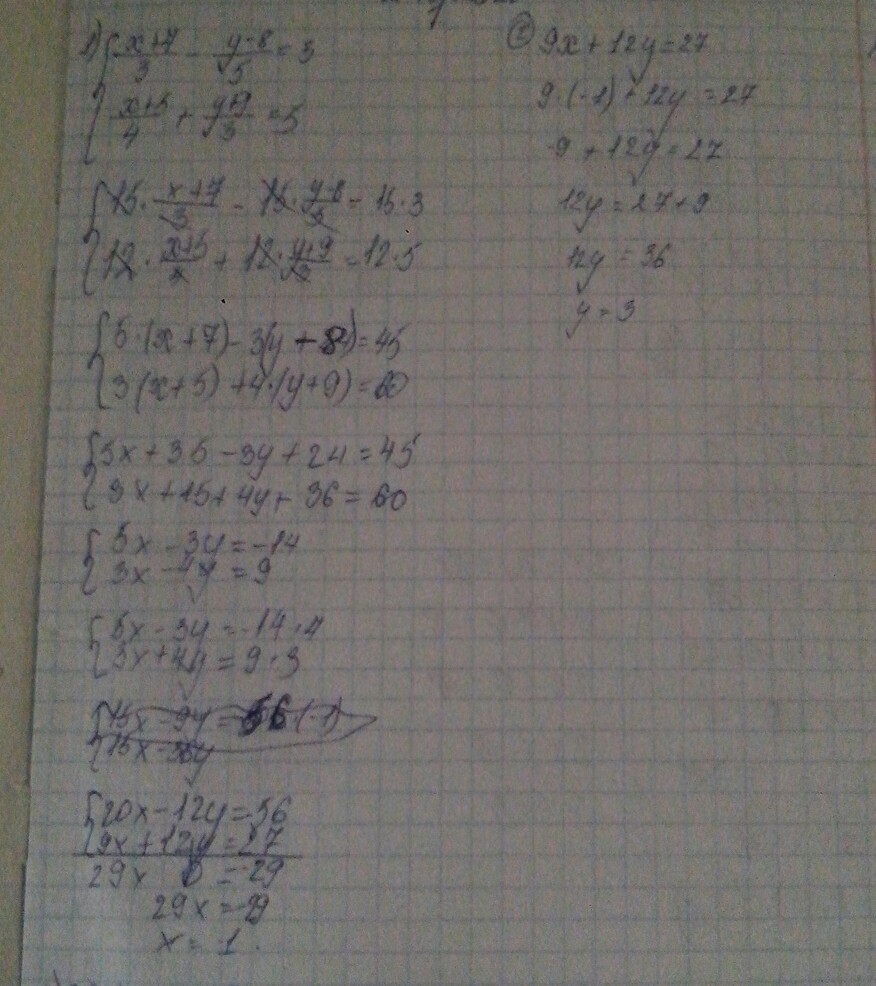 1) { (x+7)/3 - (y-8)/5 = 3
(x+5)/4 + (y+9)/3 = 5
{ 15 · (x+7)/3 - 15 · (y-8)/5 = 15·3
12 · (x+5)/4 + 12 · (y+9)/3 = 12·5
{ 5·(x+7) - 3(y+8) = 45
3(x+5) + 4·(y+9) = 60
{ 5x + 35 - 3y + 24 = 45
3x + 15 + 4y + 36 = 60
{ 5x - 3y = -14
3x - 4y = 9
{ 5x - 3y = -14·4
3x + 4y = 9·3
{ 15x - 9y = 56 (-1)
15x - 36y
{ 20x - 12y = -56
9x + 12y = 27
29x 0 = -29
29x = -29
x = -1
② 9x + 12y = 27
9·(-1) + 12y = 27
-9 + 12y = 27
12y = 27+9
12y = 36
y = 3